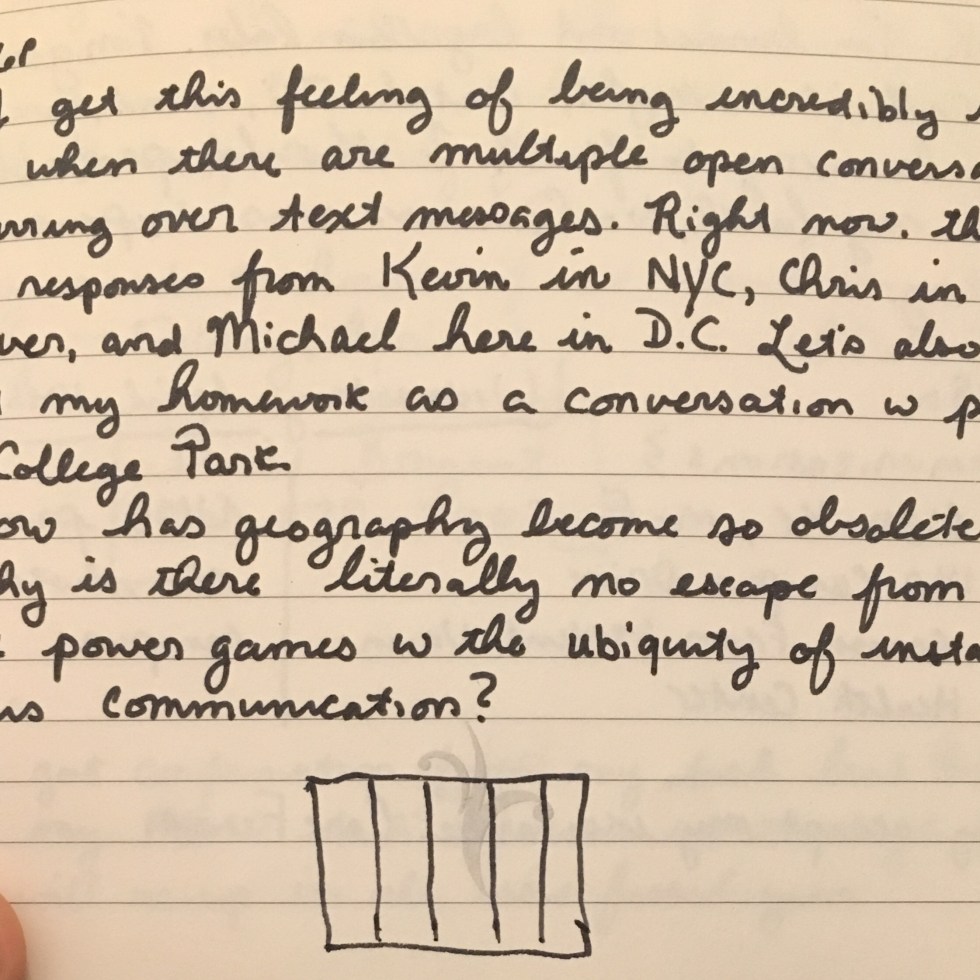 get this feeling of being incredibly
when there are multiple open conversa
rring over text messages. Right now, th
responses from Kevin in NYC, Chris in
ver, and Michael here in D.C. Let's also
my homework as a conversation w p
College Park
ow has geography become so obsolete
hy is there literally no escape from
power games w the ubiquity of insta
us communication?